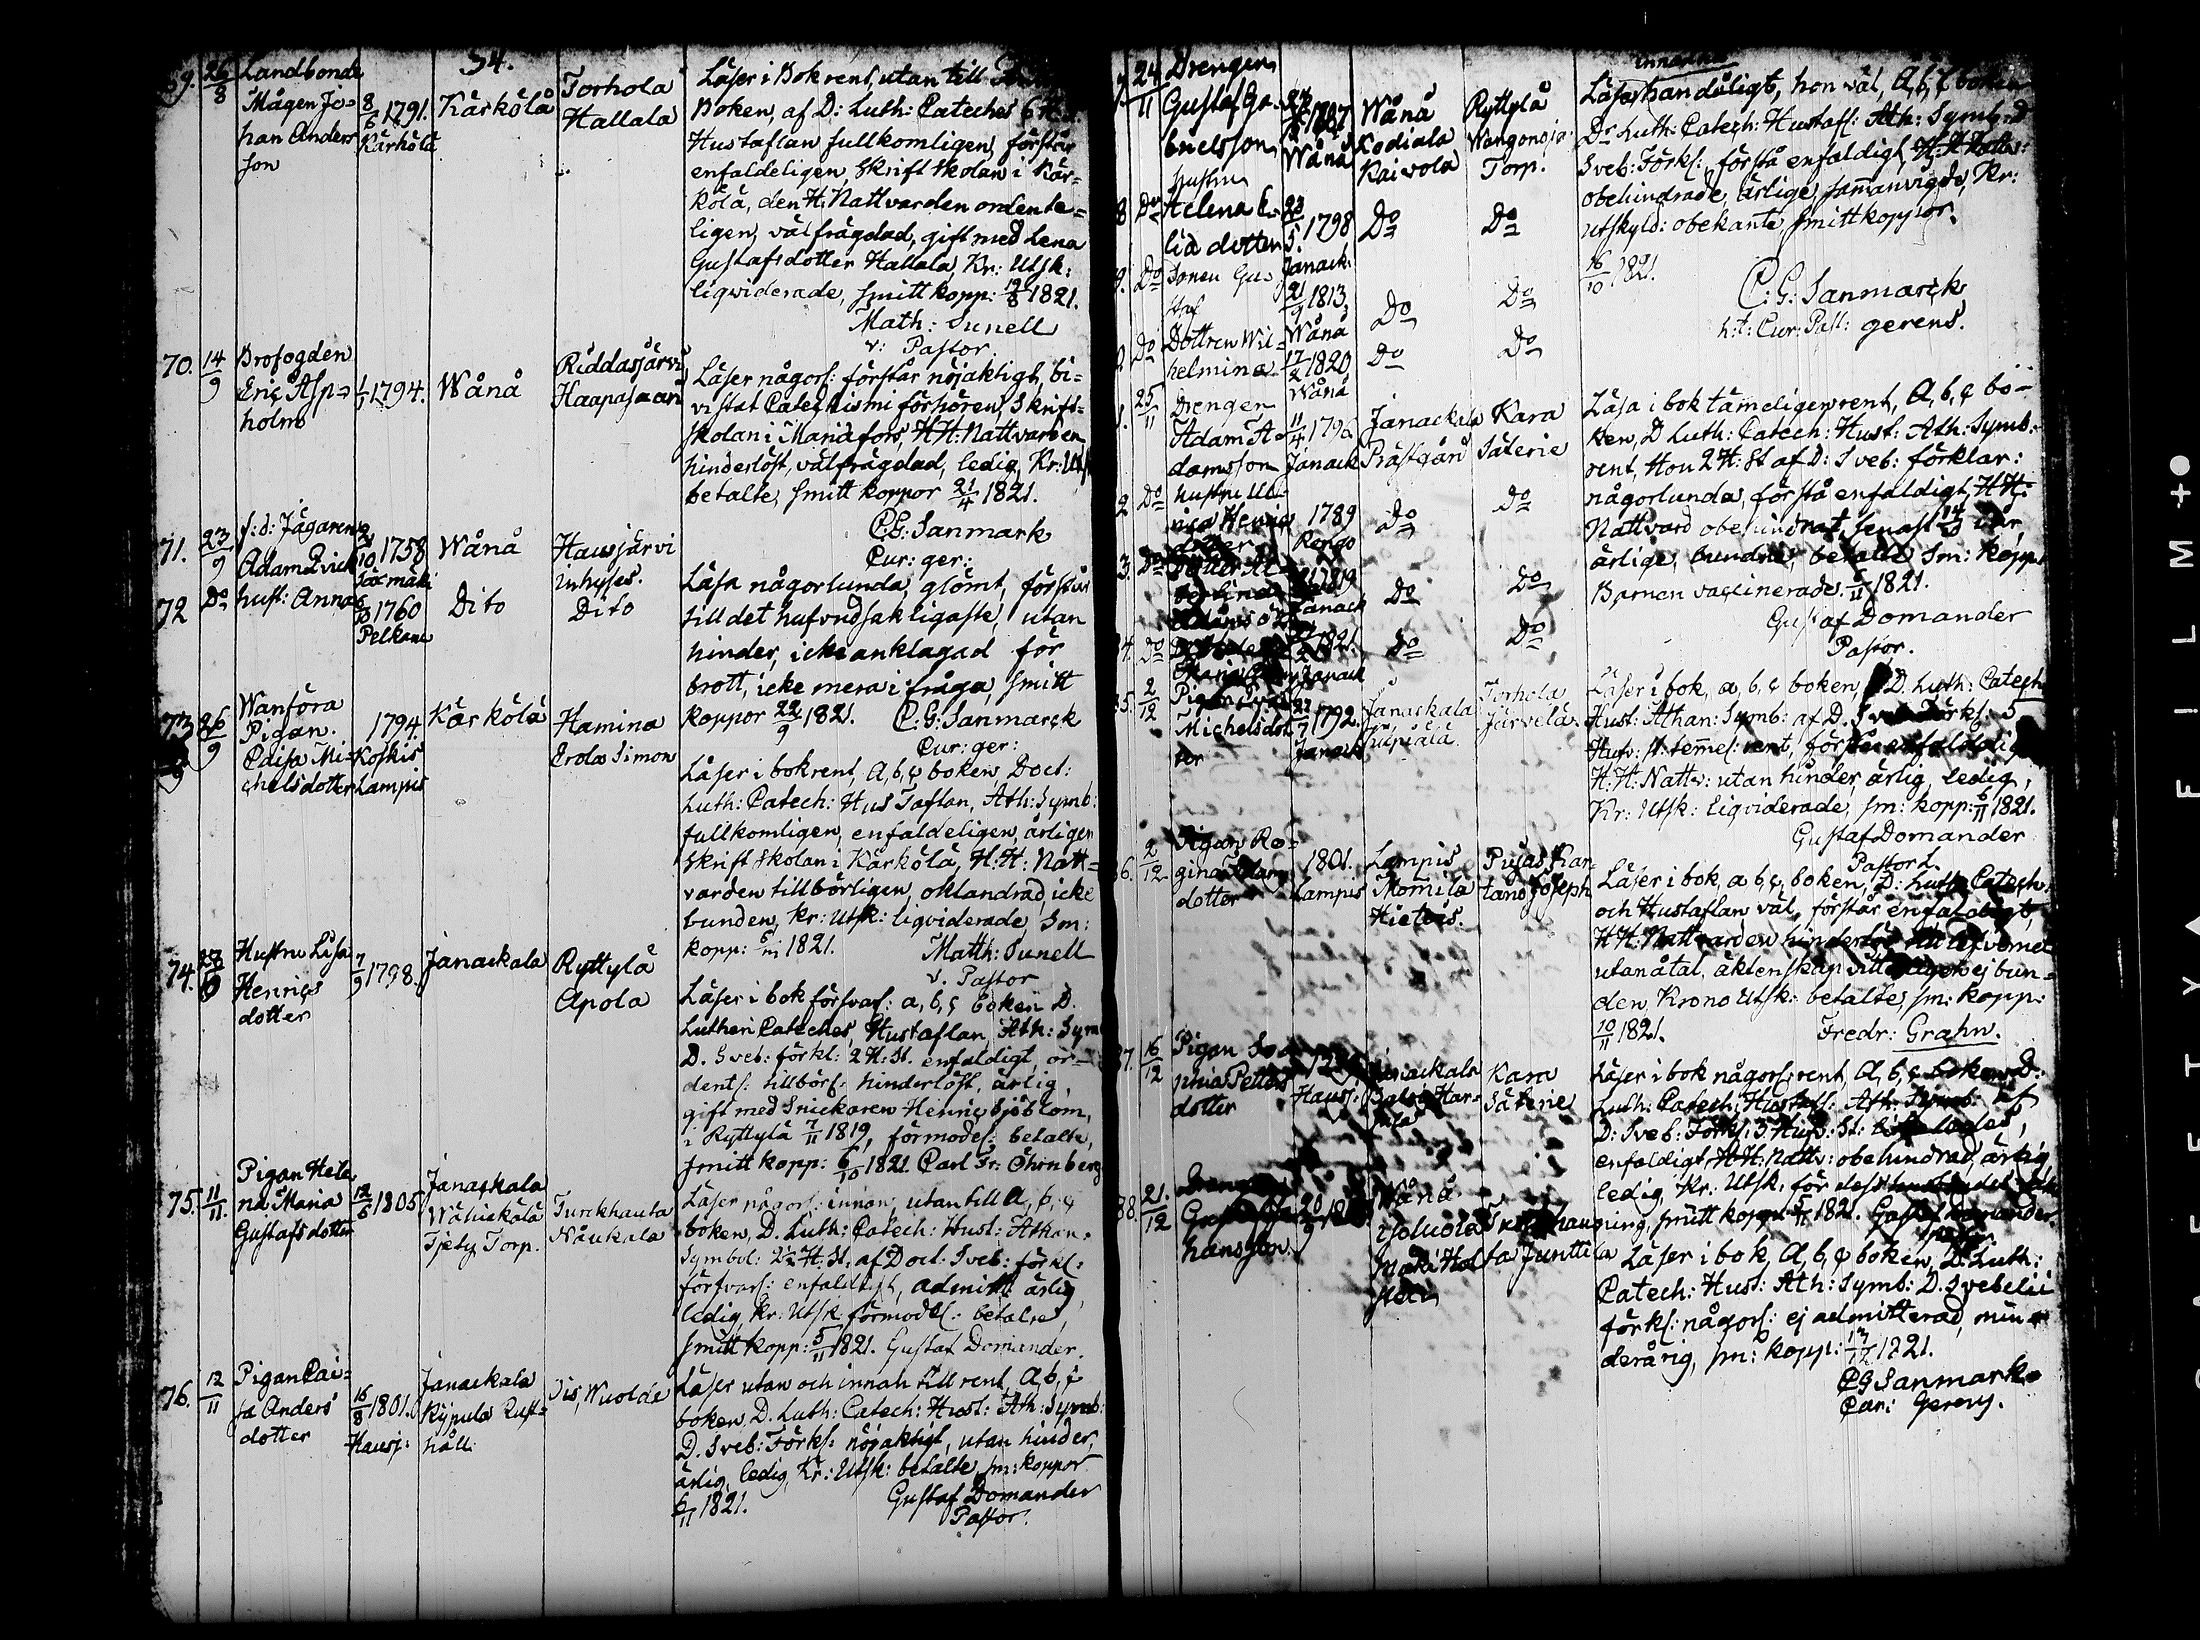 54.
69. 26/8 Landbonde
Mågen Jo-
han Anders
son
8/6 1791.
Kärkölä
Kärkölä
Torhola
Hallala
Läser i Bok rent, utan till
Boken, af D: Luth: Cateches
Hustaflan fullkomligen, förstår
enfaldeligen, Skriftskolan i Kär-
kölä, den H: Nattvarden ordente-
ligen, välfrägdad, gift med Lena
Gustafsdotter Hallala, Kr: Utsk:
liqwiderade, smittkopp: 19/8 1821.
Math: Sunell
v: Pastor.
70. 14/9 Brofogden
Eric Asp-
holm
1/1 1794.
Wånå
Riddasjärvi
Haapasaari
Läser någorl: förstår nöjaktigt, bi-
vistat Catechismi förhören, Skrift-
skolan i Mariæfors, H H: Nattvarden
hinderlöst, välfrägdad, ledig, Kr: Utsk
betalte, smitt koppor 21/4 1821.
C:G: Sanmark
Cur: ger:
71. 23/9 f:d: Jägaren
Adam Qvick
1758
Wånå
Hausjärvi
inhyses.
72 Do hust: Anna
1760
Pelkane
Dito
Dito
Läsa någorlunda, glömt, förstår
till det hufvudsakligaste, utan
hinder, icke anklagad för
brott, icke mera i fråga, smitt
koppor 22/9 1821. C:G: Sanmarck
Cur: ger:
73 26/9 Wanföra
Pigan.
Caisa Mi-
chelsdotter
1794.
Koskis
Lampis
Kärkölä
Hamina
Erola Simon
Läser i bok rent, A, b, c boken Doct:
Luth: Catech: Hus Taflan, Ath: Symb:
fullkomligen, enfaldeligen, ärligen
Skriftskolan i Kärkölä, H: H: Natt-
varden tillbörligen, oklandrad, icke
bunden, Kr: Utsk: liqviderade, Sm:
kopp: 1821. Matth: Sunell
v. Pastor
74. Hustru Lisa
Henrics
dotter
7/9 1798.
Janackala
Ryttylä
Apola
Läser i bok försvarl: a, b, c boken D.
Lutheri Cateches, Hustaflan, Ath: Sym
D. Sveb: förkl: 2 H: St. enfaldigt, or-
dentl: tillbörl: hinderlöst, ärlig,
gift med Snickaren Henric Sjöblom,
i Ryttylä 7/11 1819, förmodel: betalte,
smittkopp: 6/10 1821. Carl Fr: Öhrnberg
75. 11/11. Pigan Hele
na Maria
Gustafsdotter
12/6 1805
Janackala
Wähickölä
Tjety Torp.
Turckhauta
Nåukala
Läser någorl: innan, utan till A, b, c
boken, D. Luth: Catech: Hust: Athan:
Symbol: 2 H: St. af Doct: Sveb: förkl:
försvarl: enfaldigt, admitt: ärlig,
ledig, Kr: Utsk: förmodel: betalte,
smittkopp: 5/11 1821. Gustaf Domander.
76. 12/11 Pigan Cai-
sa Anders
dotter
16/8 1801.
Hausj:
Janackala
Rypula Rust-
håll:
Läser utan och innan till rent, A, b, c
boken, D. Luth: Catech: Hust: Ath: Symb:
D. Sveb: Förkl: nöjaktigt, utan hinder,
ärlig, ledig, Kr: Utsk: betalte, sm: koppor
6/11 1821. Gustaf Domander
Pastor.
24/11 Drengen
Gustaf Ga-
brielsson
1787
Wånå
Wånå
Kodiala
Kaivola
Ryttylä
Wangonoja
Torp.
hustru
8 Do Helena E-
lia dotter
23/5. 1798
Janack:
Do
Do
9. Do Sonen Gu-
staf
21/9 1813
Wånå
Do
Do
Do Dottren Wil-
helmina
17/2 1820
Wånå
Do
Do
innantill
Läser han dåligt, hon väl, A, b, c boken
Dr Luth: Catech: Hustafl: Ath: Symb:
Sveb: Förkl:, förstå enfaldigt, H: H:
obehindrade, ärlige, sammanvigde, Kr:
utskyld: obekante, smittkoppor.
16/10 1821.
C:G: Sanmarck
h:t: Cur: Past: gerens.
1. 25/11 Drengen
Adam A-
damsson
11/4 179
Janack
Janackala
Prästgård
Kara
Säterie
2 Do hustru Ul-
rica Henrics
dotter
1789
Rengo
Do
Do
3. Do
1819
Janack
Do
Do
4. Do
1821.
Janack
Do
Do
Läsa i bok tämeligen rent, A, b, c bo-
ken, D Luth: Catech: Hust: Ath: Symb.
rent, Hon 2 H: St af D: Sveb: förklar:
någorlunda, förstå enfaldigt, H H:
Nattvard obehindrat, senast i år
ärlige, bundne, betalte Sm: kopp:
Barnen vaccinerade. 1821.
Gustaf Domander
Pastor.
85. 2/12 Pigan
Michelsdot
ter
1792.
Janack
Janackala
Torhola
Järvelä
Läser i bok, a, b, c boken, D. Luth: Catech
Hust: Athan: Symb: af D. Sveb: Förkl: 5
Hufv: st: temel: rent, förstår enfaldigt
H: H: Nattv: utan hinder, ärlig, ledig,
Kr: Utsk: liqviderade, sm: kopp: 6/11 1821.
Gustaf Domander
Pastor L.
86. 2/12 Pigan Re-
gina
dotter
1801.
Lampis
Lampis
Momila
Hietois.
Pujas Kar-
tano Joseph
Läser i bok, a b, c, boken, D: Luth: Catech:
och Hustaflan väl, förstår enfaldigt,
H H: Nattvarden hinderlöst
utan åtal, äktenskap ej bun-
den, Krono Utsk: betalte, sm: kopp:
10/11 1821. Fredr: Grahn.
87. 16/12 Pigan So-
phia Petters
dotter
Hausj:
Janackala
Kara
Säterie
Läser i bok någorl: rent, A, b, c boken D.
Luth: Catech: Hustafl: Ath: Symb: af
D: Sveb: Förkl: 3 Hufv: St:
enfaldigt, H H: Nattv: obehindrad, ärlig,
ledig, Kr. Utsk: för dess
ning, smitt kopp: 1821. Gustaf Domander
Pastor
88. 21./12
hansson
Wånå
Junttila
Läser i bok, A, b, c boken, D: Luth:
Catech: Hust: Ath: Symb: D. Svebelii
förkl: någorl: ej admitterad, min-
derårig, sm: kopp: 13/12 1821.
CG Sanmark
Cur: Gerens.
F I L M